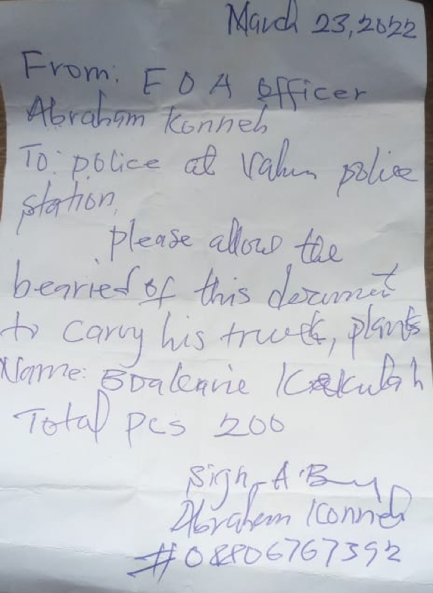 March 23, 2022
From: F D A Officer
Abraham Konneh
To: police at Vahun police
station,
please allow the
bearied of this document
to carry his truck, plants
Name: Kekulah
Total Pcs 200
Sign-A.B
Abraham Konneh